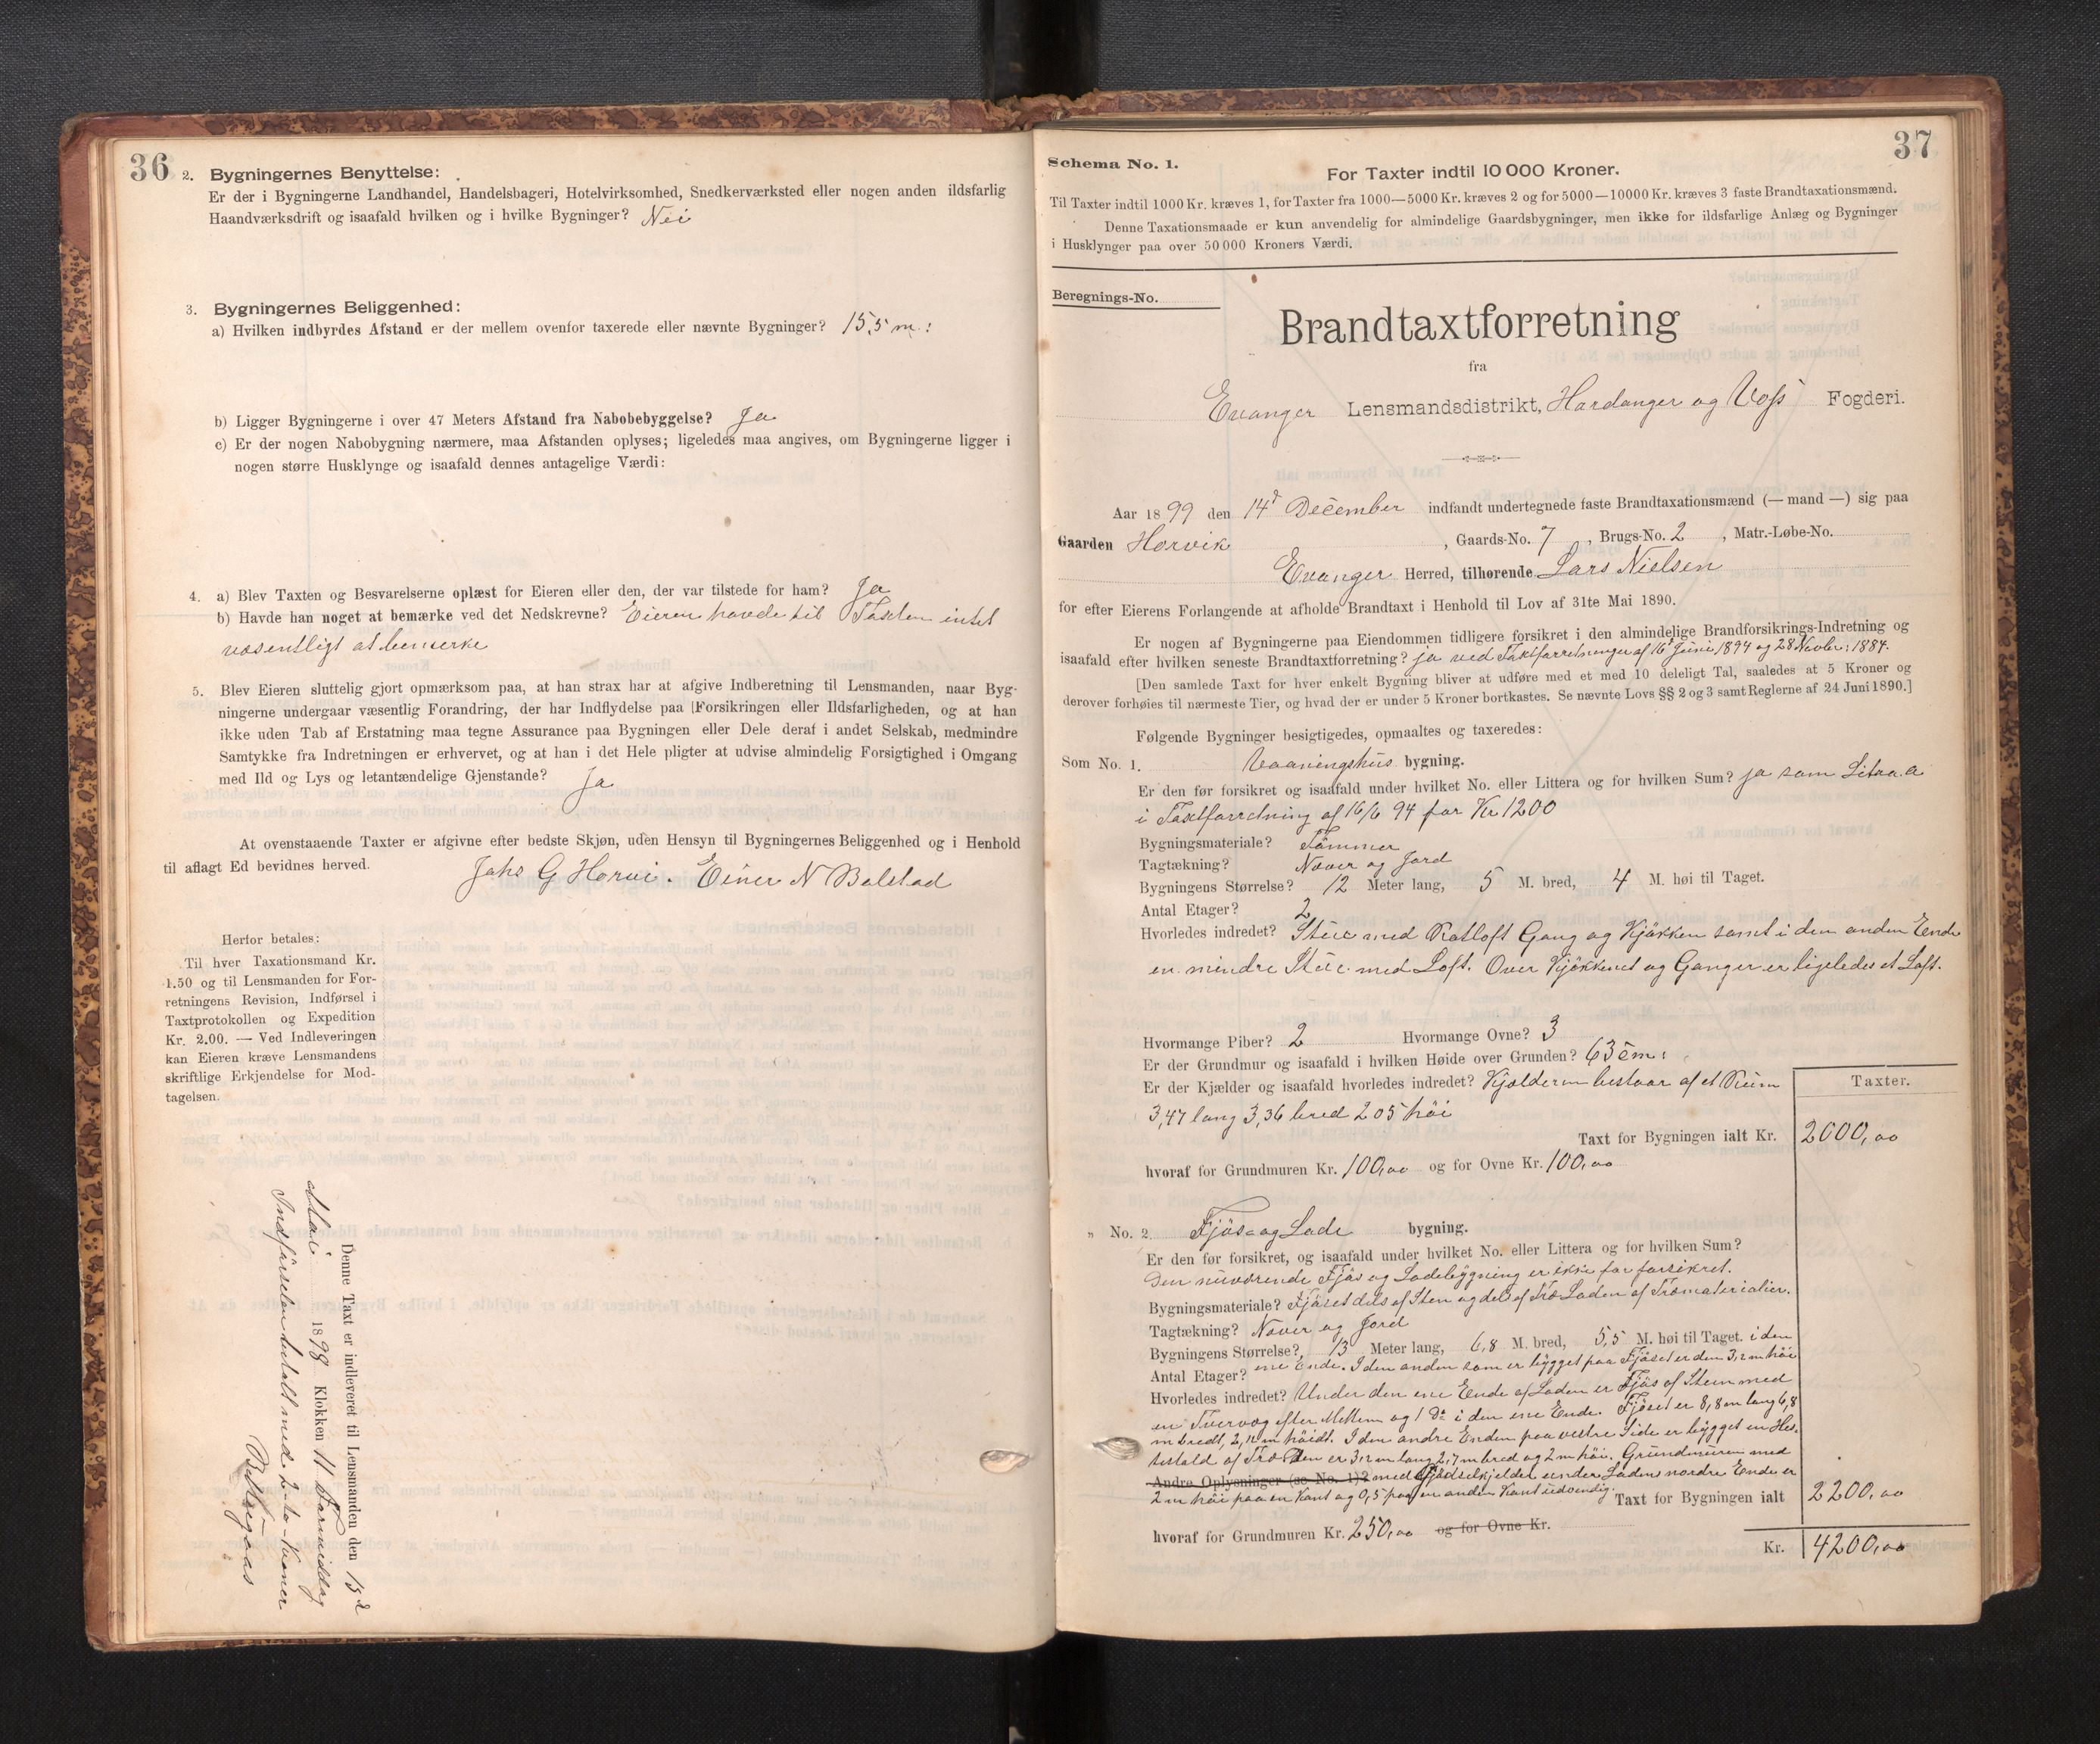 36
2. Bygningernes Benyttelse:
Er der i Bygningerne Landhandel, Handelsbageri, Hotelvirksomhed, Snedkerværksted eller nogen anden ildsfarlig
Haandværksdrift og isaafald hvilken og i hvilke Bygninger? Nei
3. Bygningernes Beliggenhed:
a) Hvilken indbyrdes Afstand er der mellem ovenfor taxerede eller nævnte Bygninger? 15,5 m:
b) Ligger Bygningerne i over 47 Meters Afstand fra Nabobebyggelse? Ja
c) Er der nogen Nabobygning nærmere, maa Afstanden oplyses; ligeledes maa angives, om Bygningerne ligger i
nogen større Husklynge og isaafald dennes antagelige Værdi:
4. a) Blev Taxten og Besvarelserne oplæst for Eieren eller den, der var tilstede for ham? Ja
b) Havde han noget at bemærke ved det Nedskrevne? Eieren havde til Taxten intet
væsentligt at bemerke
5. Blev Eieren sluttelig gjort opmærksom paa, at han strax har at afgive Indberetning til Lensmanden, naar Byg-
ningerne undergaar væsentlig Forandring, der har Indflydelse paa [Forsikringen eller Ildsfarligheden, og at han
ikke uden Tab af Erstatning maa tegne Assurance paa Bygningen eller Dele deraf i andet Selskab, medmindre
Samtykke fra Indretningen er erhvervet, og at han i det Hele pligter at udvise almindelig Forsigtighed i Omgang
med Ild og Lys og letantændelige Gjenstande? Ja
At ovenstaaende Taxter er afgivne efter bedste Skjøn, uden Hensyn til Bygningernes Beliggenhed og i Henhold
til aflagt Ed bevidnes herved.
Johs G Horvei. Einer N Bolstad
Herfor betales:
Til hver Taxationsmand Kr.
1.50 og til Lensmanden for For-
retningens Revision, Indførsel i
Taxtprotokollen og Expedition
Kr. 2.00. — Ved Indleveringen
kan Eieren kræve Lensmandens
skriftlige Erkjendelse for Mod-
tagelsen.
Denne Taxt er indleveret til Lensmanden den 15d
Mai 1898 Klokken 11 Formiddag
Indførselen betalt med 2 - to - Kroner
37
Schema No. 1.
For Taxter indtil 10 000 Kroner.
Til Taxter indtil 1000 Kr. kræves 1, for Taxter fra 1000—5000 Kr. kræves 2 og for 5000—10000 Kr. kræves 3 faste Brandtaxationsmænd.
Denne Taxationsmaade er kun anvendelig for almindelige Gaardsbygninger, men ikke for ildsfarlige Anlæg og Bygninger
i Husklynger paa over 50 000 Kroners Værdi.
Beregnings-No.
Brandtaxtforretning
fra
Evanger Lensmandsdistrikt, Hardanger og Voss Fogderi.
Aar 1899 den 14d December indfandt undertegnede faste Brandtaxationsmænd (— mand —) sig paa
Gaarden Horvik, Gaards-No. 7, Brugs-No. 2, Matr.-Løbe-No.
Evanger Herred, tilhørende Lars Nielsen
for efter Eierens Forlangende at afholde Brandtaxt i Henhold til Lov af 31te Mai 1890.
Er nogen af Bygningerne paa Eiendommen tidligere forsikret i den almindelige Brandforsikrings-Indretning og
isaafald efter hvilken seneste Brandtaxtforretning? ja ved Taxtforretninger af 16d Juni 1894 og 28 Novbr: 1884.
[Den samlede Taxt for hver enkelt Bygning bliver at udføre med et med 10 deleligt Tal, saaledes at 5 Kroner og
derover forhøies til nærmeste Tier, og hvad der er under 5 Kroner bortkastes. Se nævnte Lovs §§ 2 og 3 samt Reglerne af 24 Juni 1890.]
Følgende Bygninger besigtigedes, opmaaltes og taxeredes:
Som No. 1. Vaaningshus bygning.
Er den før forsikret og isaafald under hvilket No. eller Littera og for hvilken Sum? ja som Litra. a
i Taxtforretning af 16/6 94 for Kr 1200
Bygningsmateriale? Tømmer
Tagtækning? Næver og Jord
Bygningens Størrelse? 12 Meter lang, 5 M. bred, 4 M. høi til Taget.
Antal Etager? 2
Hvorledes indredet? Stue med Ratloft Gang og Kjøkken samt i den anden Ende
en mindre Stue med Loft. Over Kjøkkenet og Ganger er ligeledes et Loft.
Hvormange Piber? 2 Hvormange Ovne? 3
Er der Grundmur og isaafald i hvilken Høide over Grunden? 63 cm:
Er der Kjælder og isaafald hvorledes indredet? Kjælderen bestaar af et Rum
3,47 lang 3,36 bred 2 05 høi
Taxter.
Taxt for Bygningen ialt Kr. 2000,00
hvoraf for Grundmuren Kr. 100,00 og for Ovne Kr. 100,00
" No. 2. Fjøs og Lade bygning.
Er den før forsikret, og isaafald under hvilket No. eller Littera og for hvilken Sum?
Den nuværende Fjøs og Ladebygning er ikke før forsikret.
Bygningsmateriale? Fjøset dels af Sten og dels af Træ Laden af Træmaterialier.
Tagtækning? Næver og Jord
Bygningens Størrelse? 13 Meter lang, 6,8 M. bred, 5,5 M. høi til Taget. i den
Antal Etager? ene Ende. I den anden som er bygget paa Fjøset er den 3,2 m høi
Hvorledes indredet? Under den ene Ende af Laden er Fjøs af Sten med
en Tvervæg efter Midten og 1 Do i den ene Ende. Fjøset er 8,8 m lang 6,8
m bredt, 2,12 m høidt. I den andre Enden paa vestre Side er bygget en Hes-
testald af Træ Den er 3,2 m lang 2,7 m bred og 2 m høi. Grundmuren med
Andre Oplysninger (se No. 1)? med Gjødselkjelder under Ladens nordre Ende er
2 m høi paa en Kant og 0,5 paa en anden Kant udvendig.
Taxt for Bygningen ialt 2200,00
hvoraf for Grundmuren Kr. 250,00 og for Ovne Kr.
Kr. 4200,00